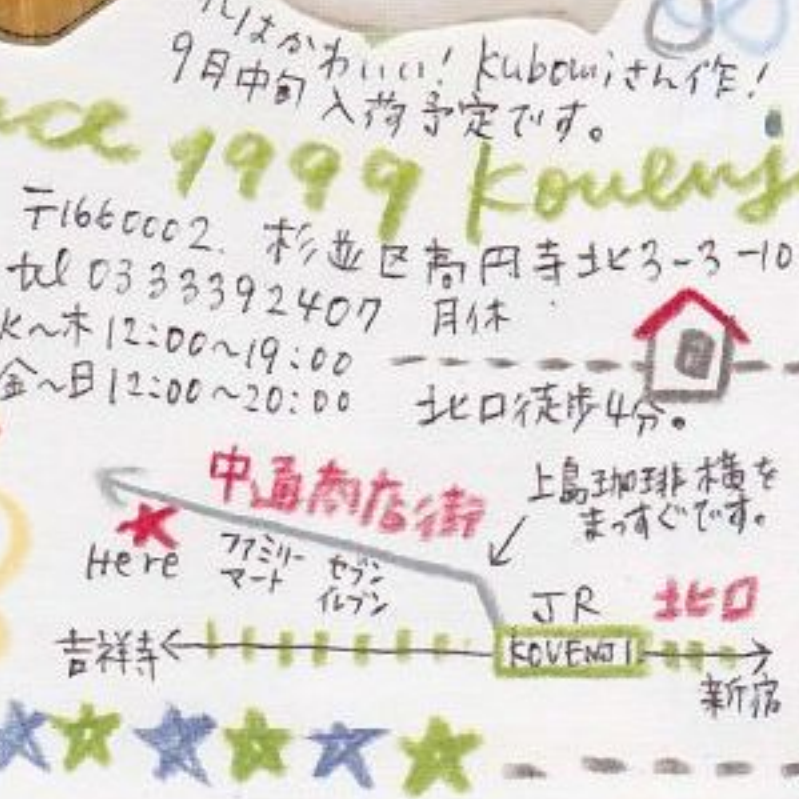 はかわいい! Kubomiさん作!
9月中旬入荷予定です。
1999 Kouenj
〒1660002. 杉並区高円寺北3-3-10
tel 0333392407 月休
火~木 12:00~19:00
金~日 12:00~20:00
北口徒歩4分。
中通商店街
上島珈琲横を
まっすぐです。
Here
ファミリー
マート
セブン
イレブン
JR 北口
吉祥寺
KOUENJI
新宿